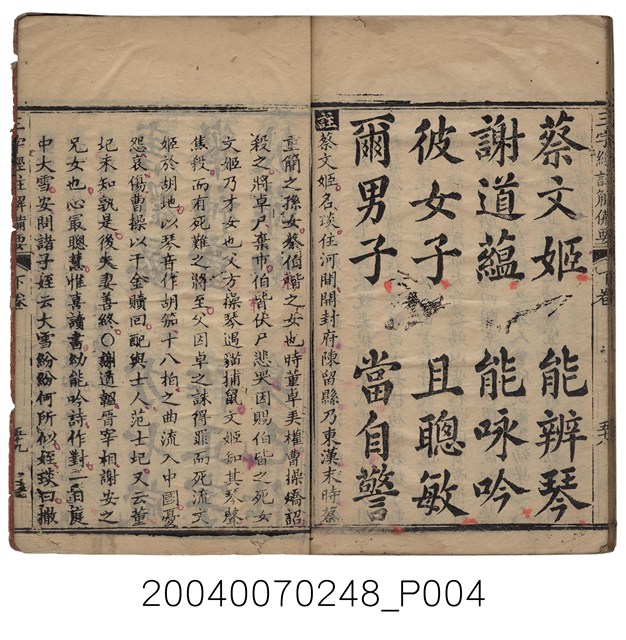 三字經註解備要 下卷 五十八
蔡文姬 能辨琴
謝道蘊 能咏吟
彼女子 且聰敏
爾男子 當自警
註 蔡文姬名琰住河開開封府陳留縣乃東漢末時蔡
主簡之孫女蔡伯楷之女也時董卓美權曹操矯詔
殺之將卓尸棄市伯楷伏尸悲哭因賜伯楷之死女
文姬乃才女也父方操琴遇猫捕鼠文姬知其琴聲
焦殺而有死難之將至父因卓之誅得罪而死流文
姬於胡地以琴音作胡笳十八拍之曲流入中國憂
怨哀傷曹操以千金贖回配與士人范士圯又云董
圯未知孰是後夫妻善終〇謝道韞晋宰相謝安之
兄女也心最聰慧惟喜讀書幼能吟詩作對一而庭
中大雪安問諸子姪云大雪紛紛何所似姪琰曰撒
三字經註解備要 下卷 五十九
20040070248_P004